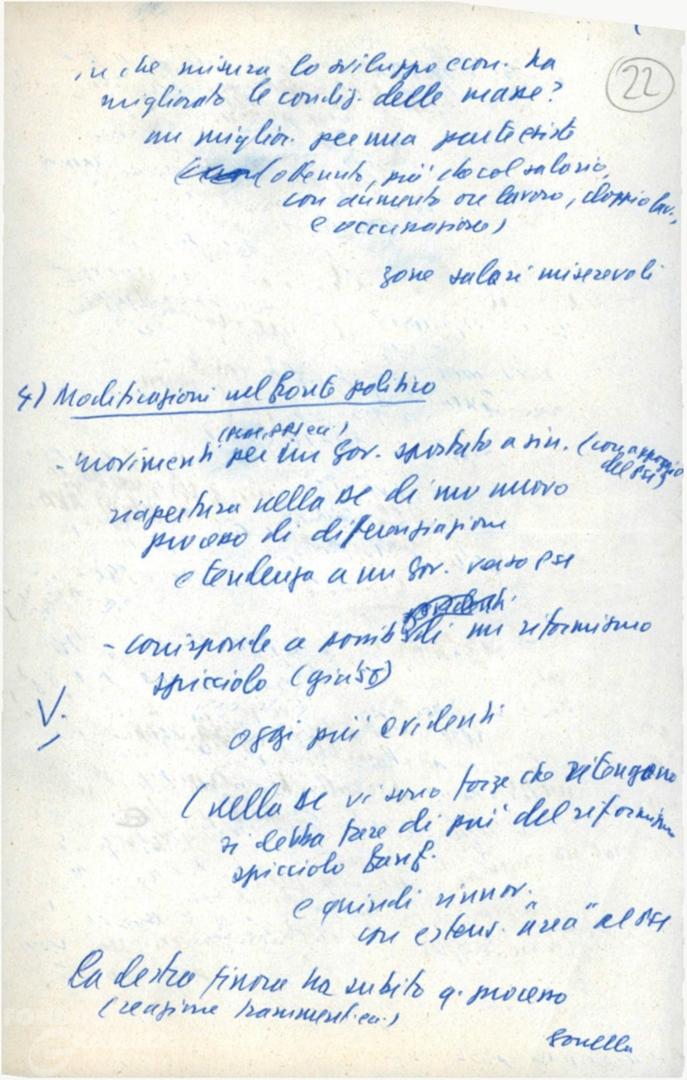 22
in che misura lo sviluppo econ. ha
migliorato le condiz. delle masse?
un miglior. per una parte esiste
(ottenuto, più che col salario,
con aumento ore lavoro, doppio lav.,
e occupazione)
zone salari miserevoli
4) Modificazioni nel fronte politico
- movimenti per un gov. spostato a sin. (con appoggio
del PSI)
riapertura nella DC di un nuovo
processo di differenziazione
e tendenza a un gov. verso PSI
- corrisponde a possib. di un riformismo
spicciolo (giusto)
V.
oggi più evidenti
(nella DC vi sono forze che ritengono
si debba fare di più del riformismo
spicciolo Fanf.
e quindi rinnov.
con estens. "area" al PSI
La destra finora ha subito q. processo
(reazione frammentaria)
Gonella